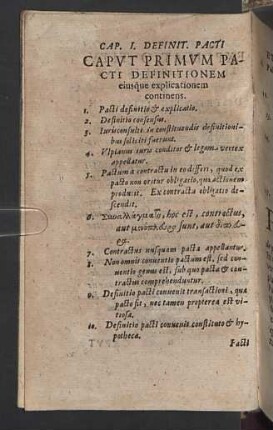 CAP. I. DEFINIT. PACTI
CAPVT PRIMVM PA-
CTI DEFINITIONEM
eiusque explicationem
continens.
1. Pacti definitio & explicatio.
2. Definitio consensus.
3. Iurisconsulti in constituendis definitioni-
bus foeliciss. fuerunt.
4. Vlpianus iuris conditor & legum vertex
appellatur.
5. Pactum à contractu in eo differt, quod ex
pacto non oritur obligatio, quae actionem
producit. Ex contractu obligatio de-
scendit.
6. hoc est, contractus,
aut sunt, aut
7. Contractus nusquam pacta appellantur.
8. Non omnis conuentio pactum est, sed con-
uentio genus est, sub quo pacta & con-
tractus comprehenduntur.
9. Definitio pacti conuenit transactioni, quae
pacto fit, nec tamen propterea est vi-
tiosa.
10. Definitio pacti conuenit constituto & hy-
pothecae.
Pacti